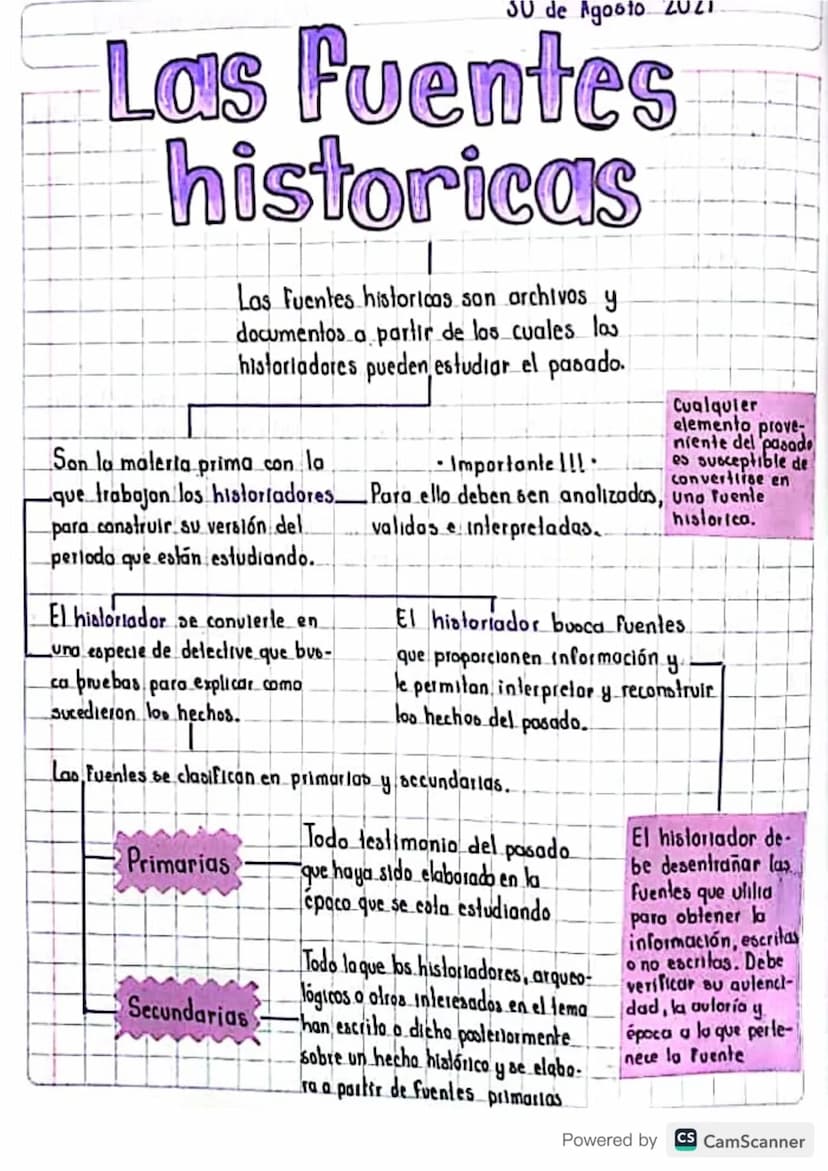 30 de Agosto 2021
Las Fuentes
historicas
Las Fuentes historicas son archivos y
documentos a partir de los cuales los
historiadores pueden estudiar el pasado.
Cualquier
elemento prove-
niente del pasado
es susceptible de
convertirse en
una Fuente
historica.
Son la materia prima con la
que trabajan los historiadores
para construir su versión del
periodo que están estudiando.
• Importante!!! •
Para ello deben sen analizadas,
validas e interpretadas.
El historiador se convierte en
una especie de detective que bus-
ca pruebas para explicar como
sucedieron los hechos.
El historiador busca Fuentes
que proporcionen información y
le permitan interpretar y reconstruir
los hechos del pasado.
Las Fuentes se clasifican en primarias y secundarias.
Primarias
Todo testimonio del pasado
que haya sido elaborado en la
época que se esta estudiando
Secundarias
Todo lo que los historiadores, arqueo-
lógicos o otros interesados en el tema
han escrito o dicho posteriormente
sobre un hecho histórico y se elabo-
ra a partir de fuentes primarias
El historiador de-
be desentrañar las
Fuentes que utilia
para obtener la
información, escritas
o no escritas. Debe
verificar su autenci-
dad, la autoría y
época a la que perte-
nece la Fuente
Powered by CS CamScanner